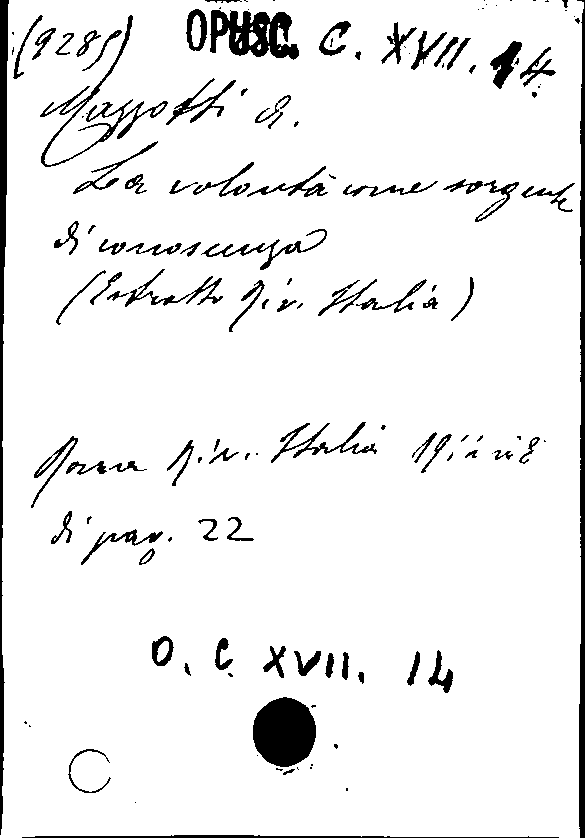 (9285) OPUSC. C. XVII. 14
Mazzotti A.
La volontà come sorgente
di conoscenza
(Estratto Riv. Italia)
Roma Riv. Italia 1911 in 8
di pag. 22
O. C. XVII. 14